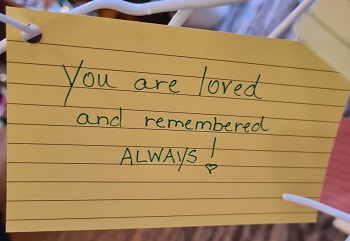 You are loved
and remembered
ALWAYS!